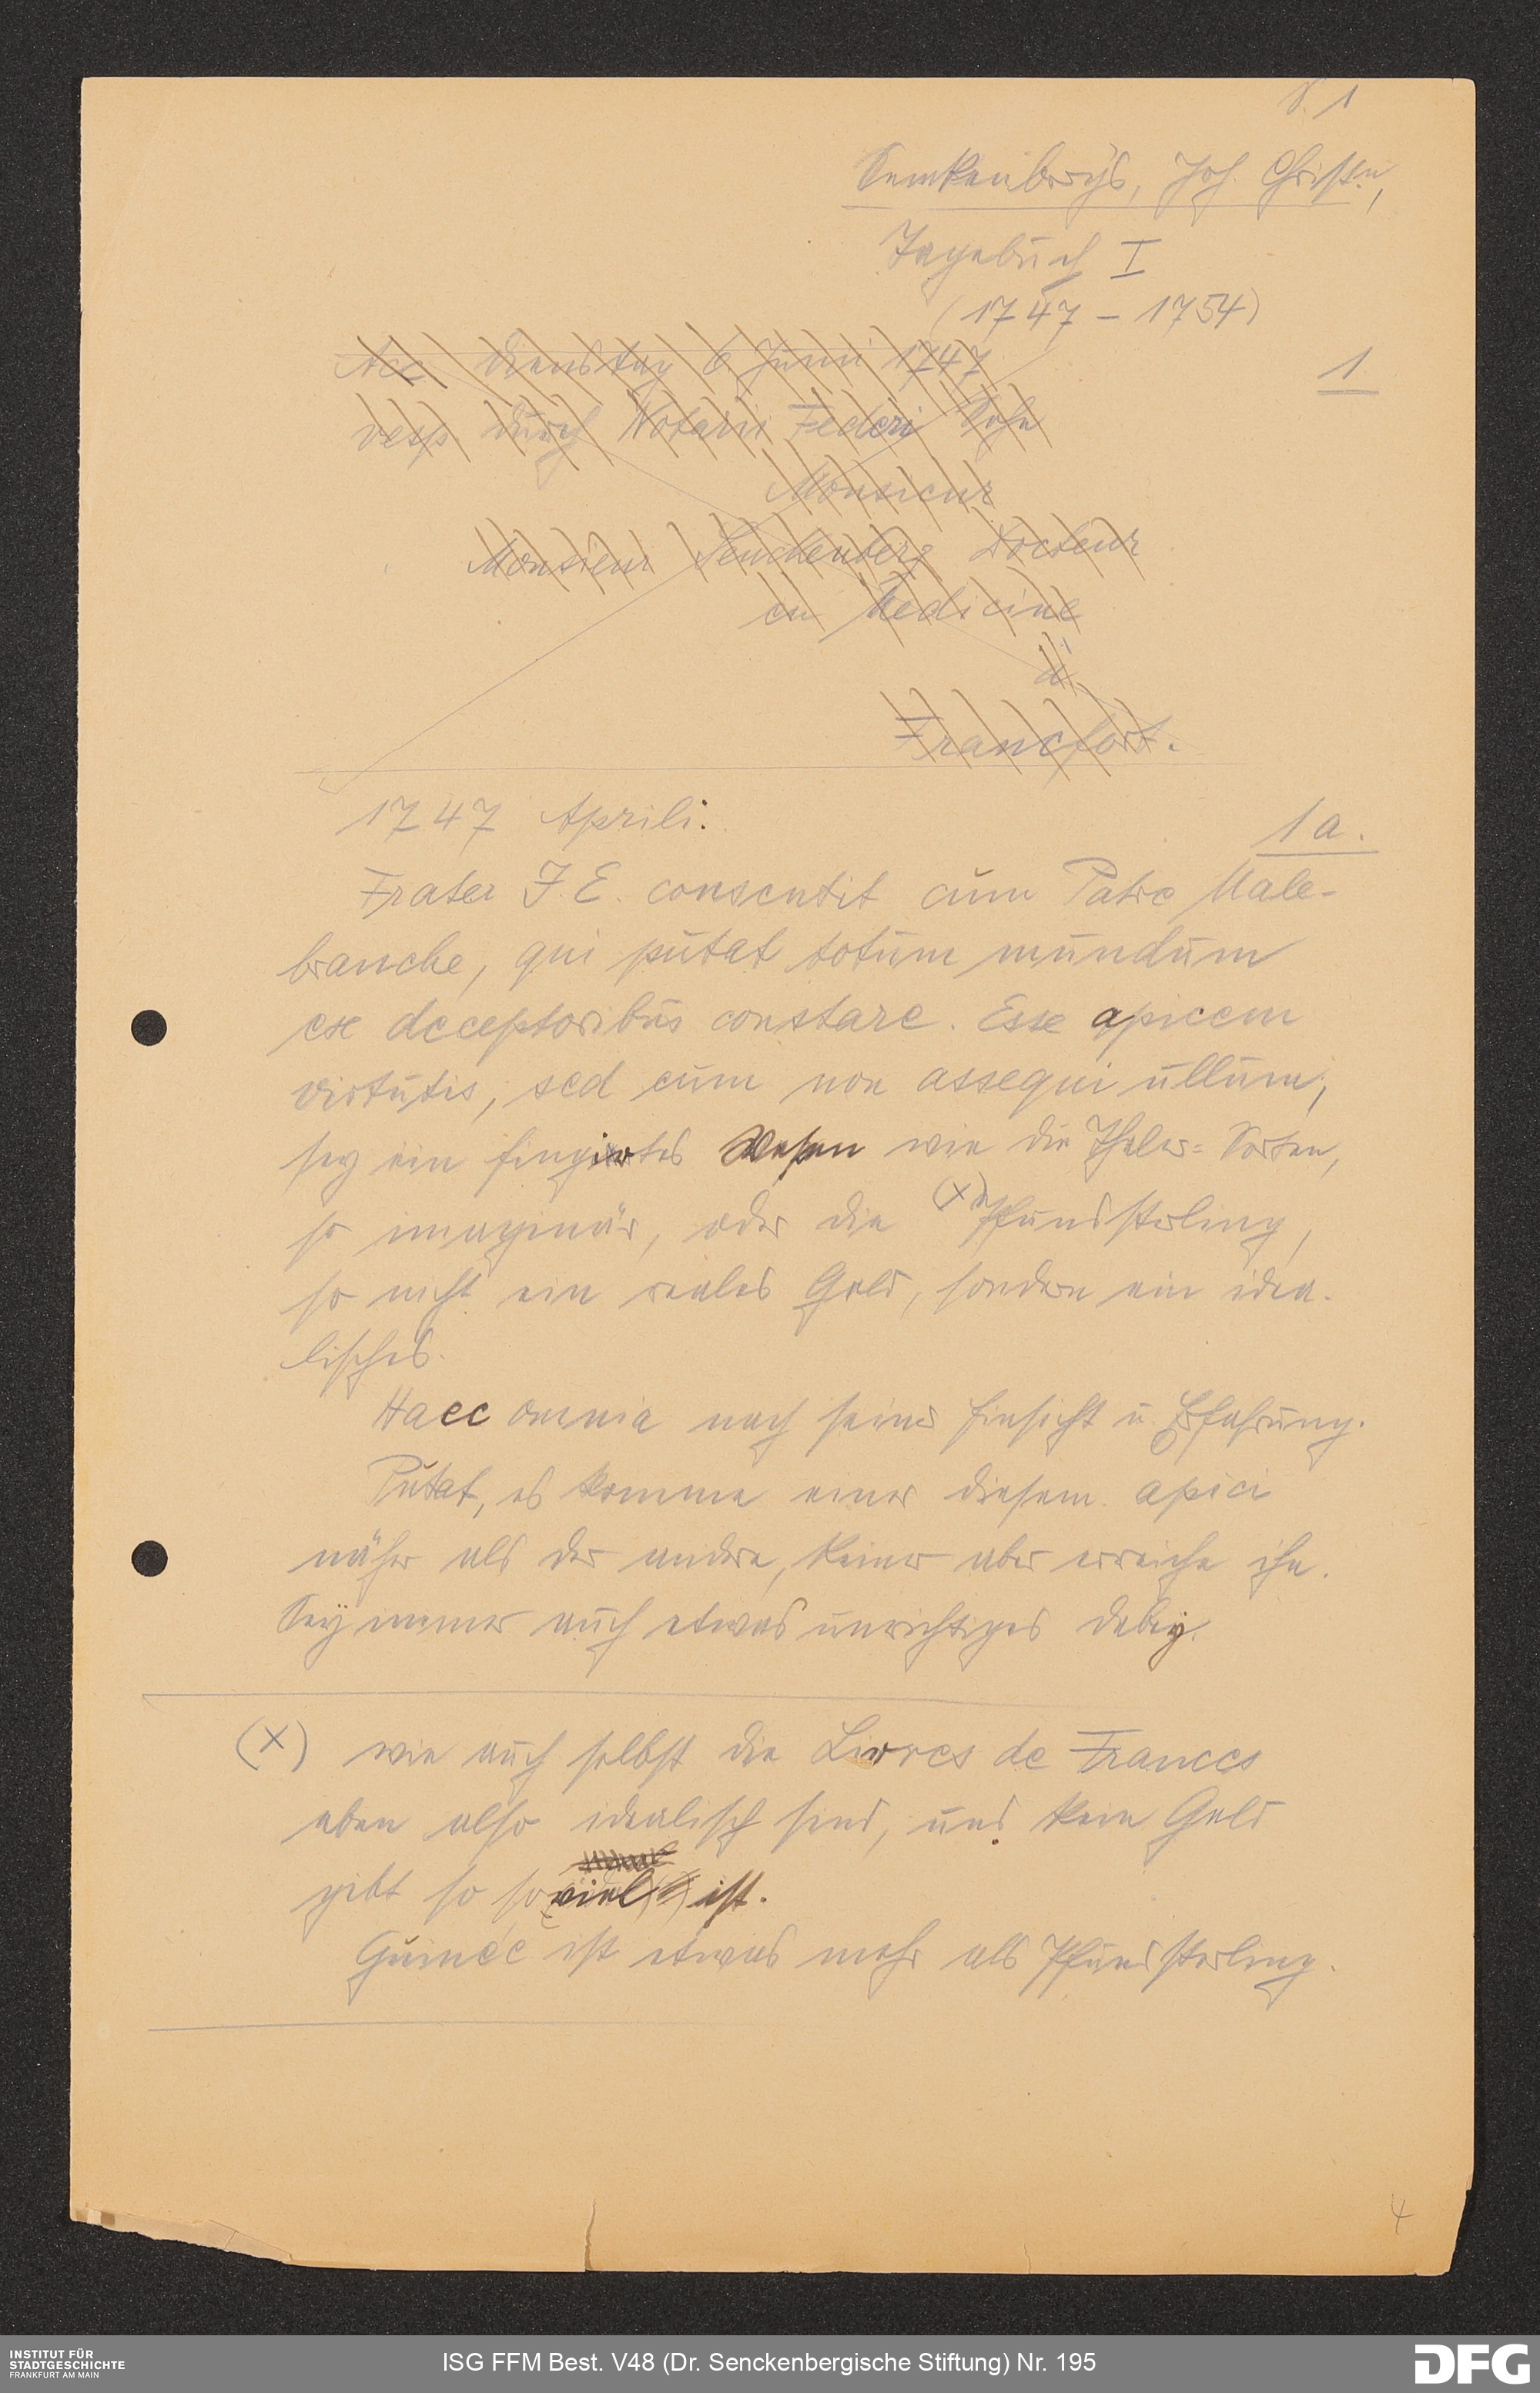 S. 1
Senckenbergs, Joh. Christn,
Tagebuch I
(1747 – 1754)
Acc Dienstag 6 Juni 1747
1
vesp. durch Notarii Federi Sohn
Monsieur
Monsieur Senckenberg Docteur
en Medicine
à
Francfort.
1747 Aprili.
1a.
Frater J. E. consentit cum Patre Male-
branche, qui putat totum mundum
ex deceptoribus constare. Esse apicem
virtutis, sed eum non assequi ullum,
sey ein fingirtes Wesen wie die Thaler-Sorten,
so imaginär, oder die (x) Pfund sterling,
so nicht ein reales Geld, sondern ein idea-
lisches.
Haec omnia nach seiner Einsicht u. Erfahrung.
Putat, es komme einer diesem apici
näher als der andere, keiner aber erreiche ihn.
Sey immer auch etwas unrichtiges dabey.
(x) wie auch selbst die Livres de Frances
eben also idealisch sind, und kein Geld
gibt so so viel ist.
Guinée ist etwas mehr als Pfund sterling.
4
INSTITUT FÜR
STADTGESCHICHTE
FRANKFURT AM MAIN
ISG FFM Best. V48 (Dr. Senckenbergische Stiftung) Nr. 195
DFG